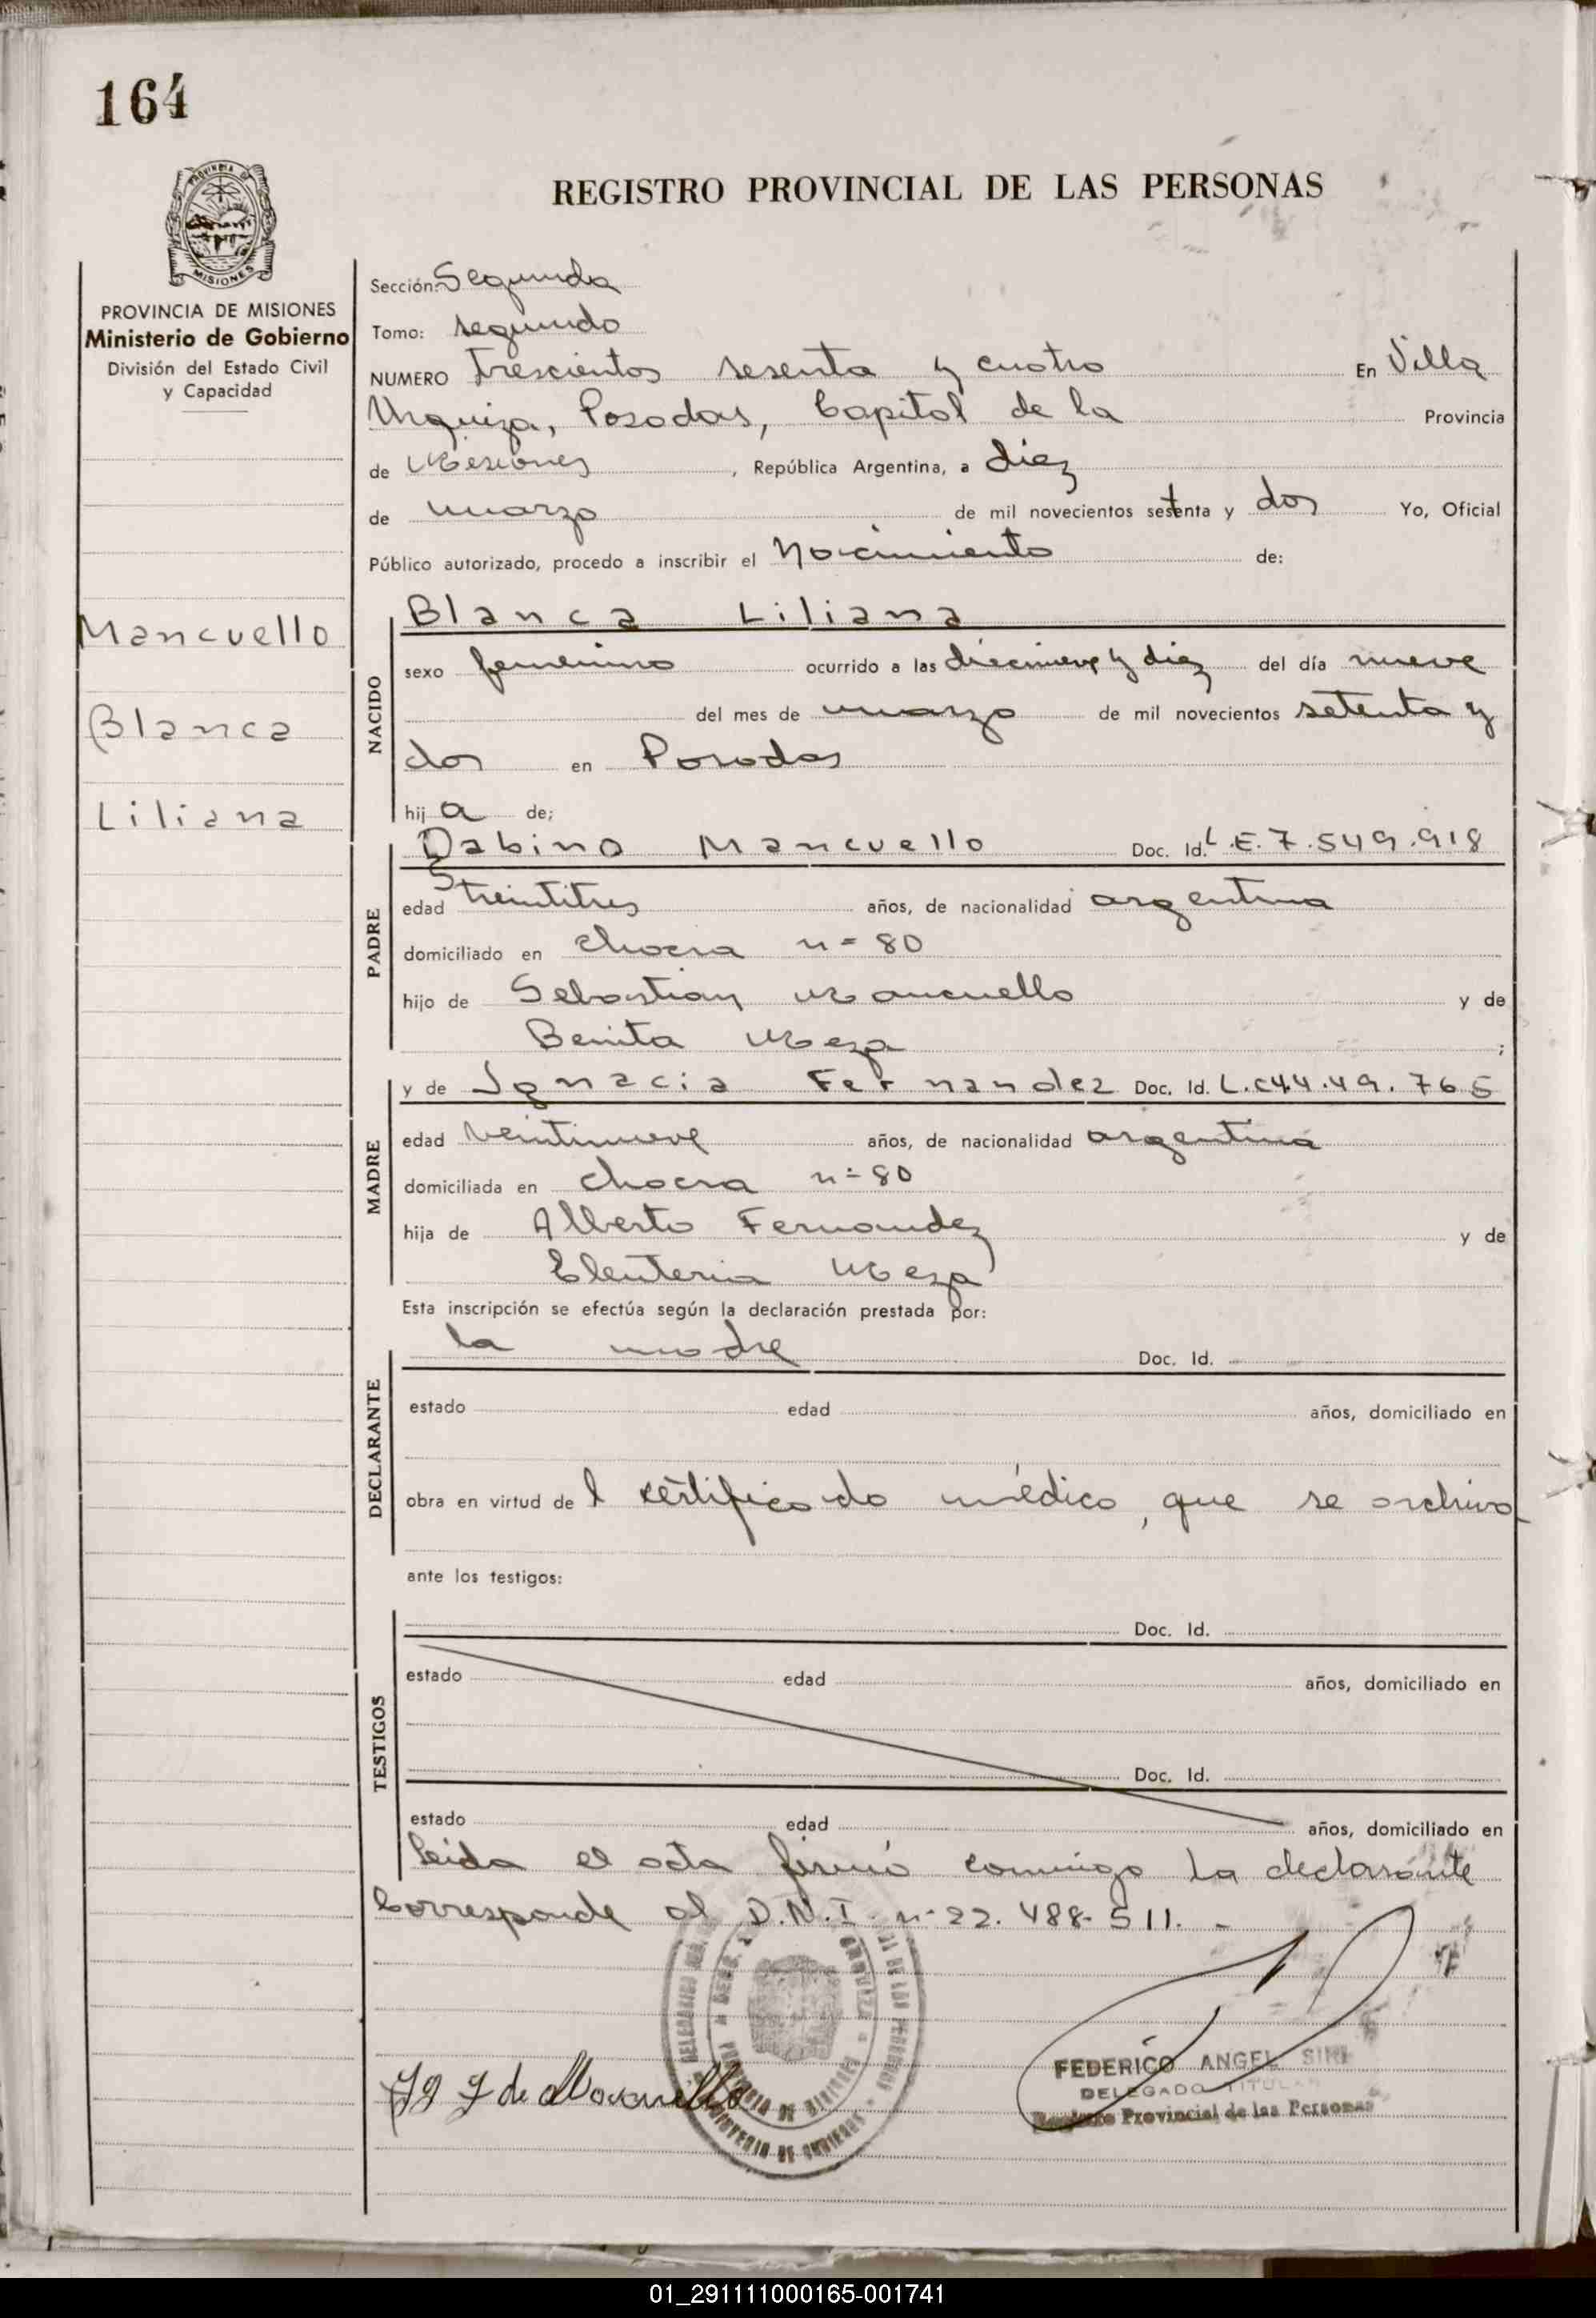 164
REGISTRO PROVINCIAL DE LAS PERSONAS
PROVINCIA DE MISIONES
Ministerio de Gobierno
División del Estado Civil
y Capacidad
Mancuello
Blanca
Liliana
Sección: Segunda
Tomo: segundo
NUMERO trescientos sesenta y cuatro En Villa
Urquiza, Posadas, Capital de la Provincia
de Misiones, República Argentina, a diez
de marzo de mil novecientos setenta y dos Yo, Oficial
Público autorizado, procedo a inscribir el Nacimiento de:
NACIDO
Blanca Liliana
sexo femenino ocurrido a las diecinueve y diez del día nueve
del mes de marzo de mil novecientos setenta y
dos en Posadas
hij a de;
PADRE
Sabino Mancuello Doc. Id. L.E. 7.549.918
edad treintitres años, de nacionalidad argentina
domiciliado en chacra n= 80
hijo de Sebastian Mancuello y de
Benita Meza ;
MADRE
y de Ignacia Fernandez Doc. Id. L.C 44.49.765
edad veintinueve años, de nacionalidad argentina
domiciliada en chacra n= 80
hija de Alberto Fernandez y de
Eleuteria Meza
Esta inscripción se efectúa según la declaración prestada por:
DECLARANTE
la madre Doc. Id.
estado edad años, domiciliado en
obra en virtud de l certificado médico, que se archiva
ante los testigos:
TESTIGOS
Doc. Id.
estado edad años, domiciliado en
Doc. Id.
estado edad años, domiciliado en
Leida el acta firmó conmigo la declarante
Corresponde al D.N.I. n- 22.488.511. -
de Mancuello
FEDERICO ANGEL
DELEGADO TITULAR
Registro Provincial de las Personas
01_291111000165-001741